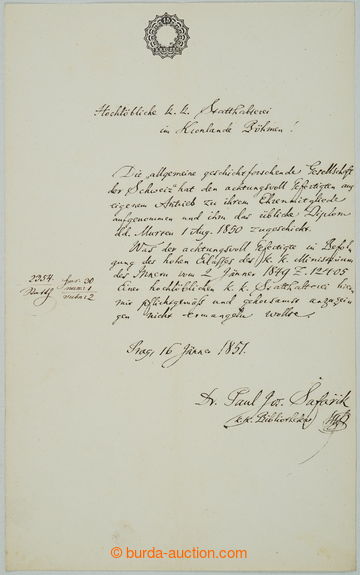 Hochlöbliche k. k. Statthalterei
im Kronlande Böhmen!
Die "allgemeine geschichtforschende Gesellschaft
der Schweiz" hat den achtungsvoll Gefertigten aus
eigenem Antrieb zu ihrem Ehrenmitgliede
aufgenommen und ihm das übliche Diplom
dd. Murten 1 Aug. 1850 zugeschickt.
Was der achtungsvoll Gefertigte in Befol-
gung des hohen Erlasses des k. k. Ministeriums
des Innern vom 2 Jänner 1849 Z.
Einer hochlöblichen k. k. Statthalterei hiermit
pflichtgemäß und gehorsamst anzuzei-
gen nicht ermangeln wollte.
2354.
Prag, 16 Jänner 1851.
Dr. Paul Jos. Šafařik
k. k. Bibliothekar
burda-auction.com